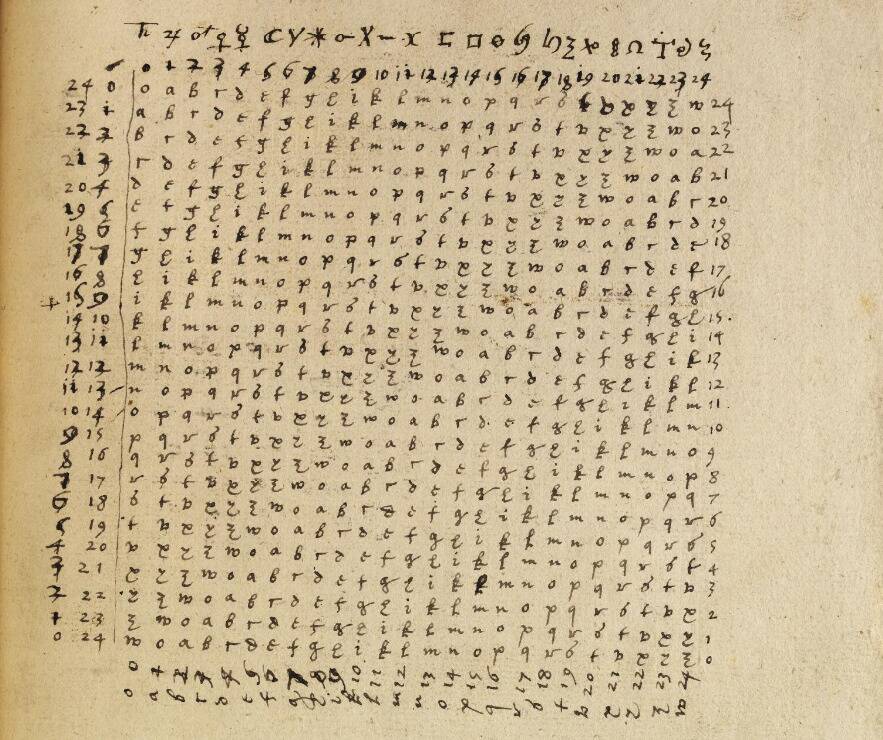 ♄ ♃ ♂ ♀ ☿ ☾ ♈ ✳ □ ♌
0 1 2 3 4 5 6 7 8 9 10 11 12 13 14 15 16 17 18 19 20 21 22 23 24
24 0 o a b c d e f g h i k l m n o p q r s t v x y z w 24
23 1 a b c d e f g h i k l m n o p q r s t v x y z w o 23
22 2 b c d e f g h i k l m n o p q r s t v x y z w o a 22
21 3 c d e f g h i k l m n o p q r s t v x y z w o a b 21
20 4 d e f g h i k l m n o p q r s t v x y z w o a b c 20
19 5 e f g h i k l m n o p q r s t v x y z w o a b c d 19
18 6 f g h i k l m n o p q r s t v x y z w o a b c d e 18
17 7 g h i k l m n o p q r s t v x y z w o a b c d e f 17
16 8 h i k l m n o p q r s t v x y z w o a b c d e f g 16
15 9 i k l m n o p q r s t v x y z w o a b c d e f g h 15
14 10 k l m n o p q r s t v x y z w o a b c d e f g h i 14
13 11 l m n o p q r s t v x y z w o a b c d e f g h i k 13
12 12 m n o p q r s t v x y z w o a b c d e f g h i k l 12
11 13 n o p q r s t v x y z w o a b c d e f g h i k l m 11
10 14 o p q r s t v x y z w o a b c d e f g h i k l m n 10
9 15 p q r s t v x y z w o a b c d e f g h i k l m n o 9
8 16 q r s t v x y z w o a b c d e f g h i k l m n o p 8
7 17 r s t v x y z w o a b c d e f g h i k l m n o p q 7
6 18 s t v x y z w o a b c d e f g h i k l m n o p q r 6
5 19 t v x y z w o a b c d e f g h i k l m n o p q r s 5
4 20 v x y z w o a b c d e f g h i k l m n o p q r s t 4
3 21 x y z w o a b c d e f g h i k l m n o p q r s t v 3
2 22 y z w o a b c d e f g h i k l m n o p q r s t v x 2
1 23 z w o a b c d e f g h i k l m n o p q r s t v x y 1
0 24 w o a b c d e f g h i k l m n o p q r s t v x y z 0
0 1 2 3 4 5 6 7 8 9 10 11 12 13 14 15 16 17 18 19 20 21 22 23 24